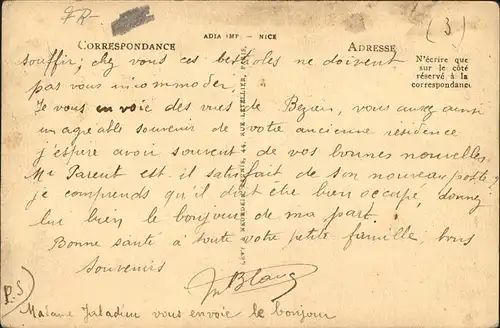 FR-
(3)
ADIA IMP. - NICE
CORRESPONDANCE
ADRESSE
N'écrire que
sur le côté
réservé à la
correspondance
souffir; chez vous ces bestioles ne doivent
pas vous incommoder.
Je vous envoie des vues de Bezien, vous aurez ainsi
un agréable souvenir de votre ancienne résidence
j'espère avoir souvent de vos bonnes nouvelles.
Mr Parent est il satisfait de son nouveau poste?
je comprends qu'il doit être bien occupé, donnez
lui bien le bonjour de ma part.
Bonne santé à toute votre petite famille, bons
souvenirs
Blanc
P.S
Madame vous envoie le bonjour
LEVY & NEURDEIN RÉUNIS, 44, RUE LETELLIER, PARIS.